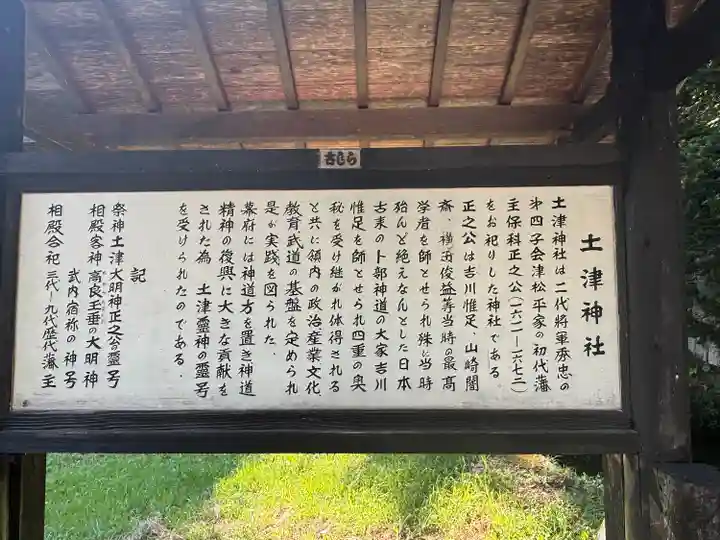 古しら
土津神社
土津神社は二代將軍秀忠の
第四子会津松平家の初代藩
主保科正之公(一六一一-一六七三)
をお祀りした神社である
正之公は吉川惟足、山崎闇
斎、横田俊益等当時の最高
学者を師とせられ殊に当時
殆んど絶えなんとした日本
古来の卜部神道の大家吉川
惟足を師とせられ四重の奥
秘を受け継がれ体得される
と共に領内の政治産業文化、
教育武道の基盤を定められ
是が実践を図られた.
幕府には神道方を置き神道
精神の復興に大きな貢献を
された為 土津霊神の霊号
を受けられたのである.
記
祭神土津大明神正之公の霊号
相殿客神高良玉垂の大明神
武内宿祢の神号
相殿合祀三代~九代歴代藩主